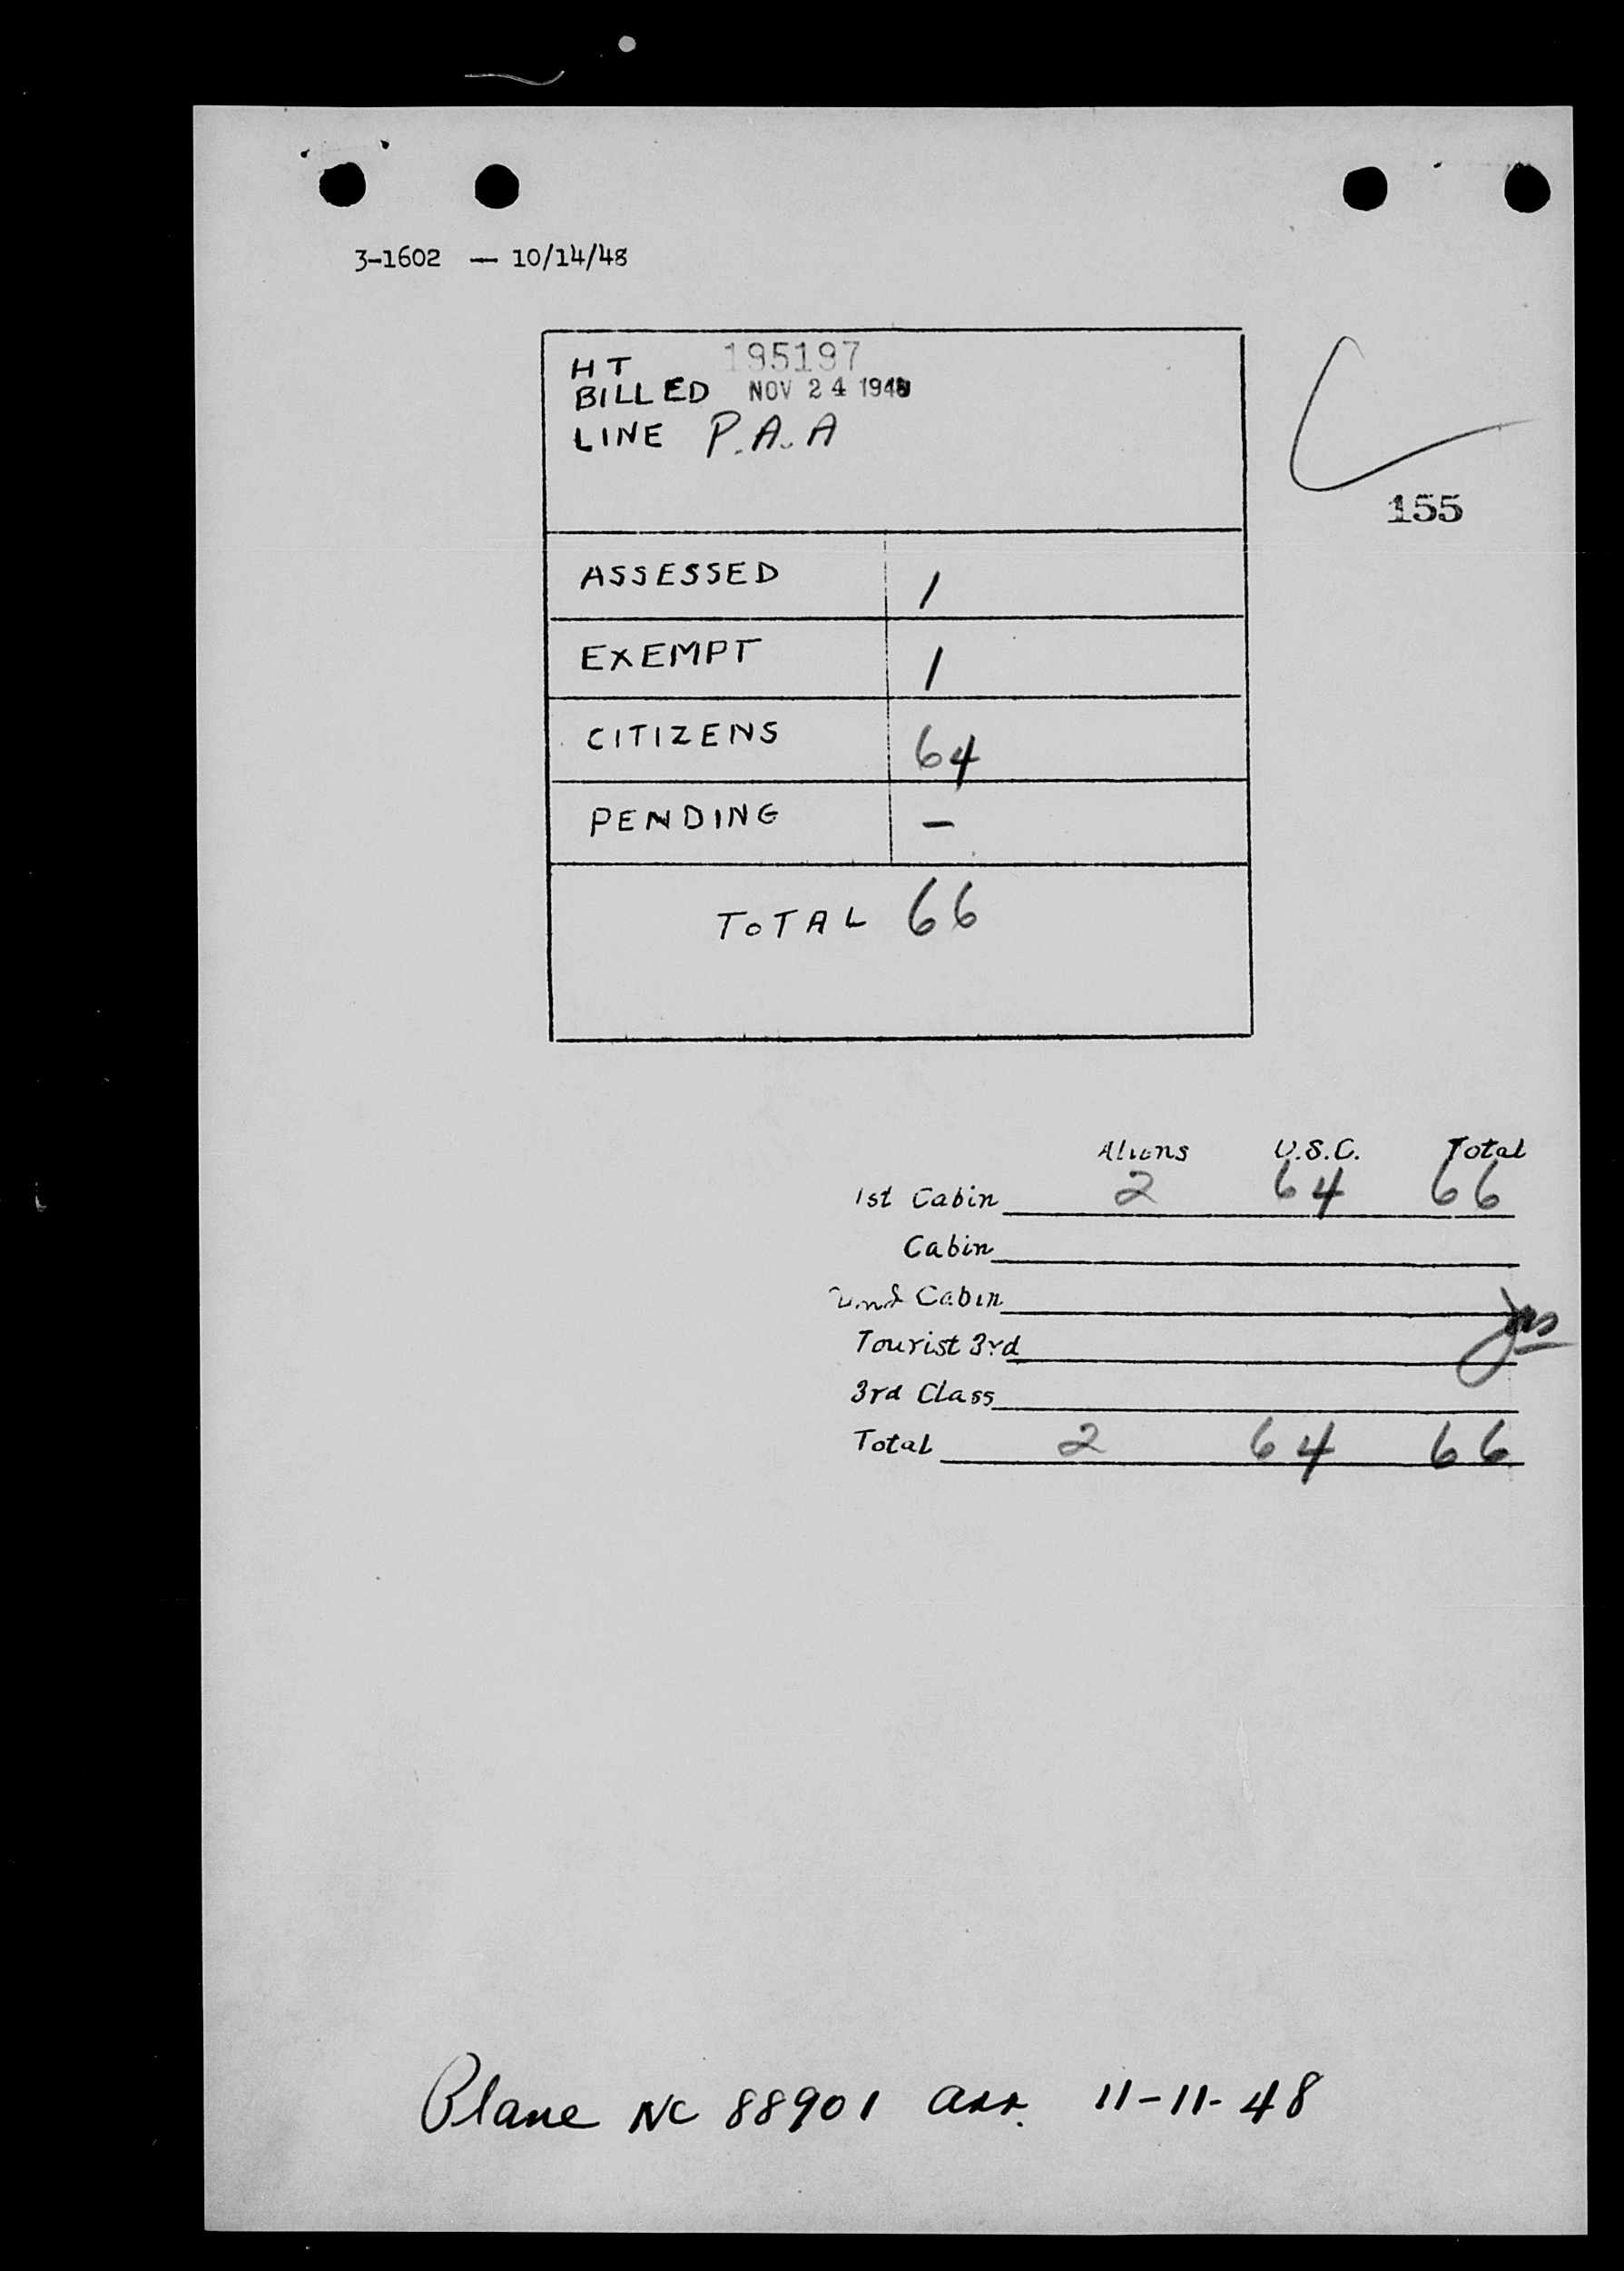 3-1602 — 10/14/48
HT 195197
BILLED NOV 24 1948
LINE P.A.A
155
ASSESSED 1
EXEMPT 1
CITIZENS 64
PENDING –
TOTAL 66
Aliens U.S.C. Total
1st Cabin 2 64 66
Cabin
2nd Cabin
Tourist 3rd
3rd Class
Total 2 64 66
Plane NC 88901 arr. 11-11-48